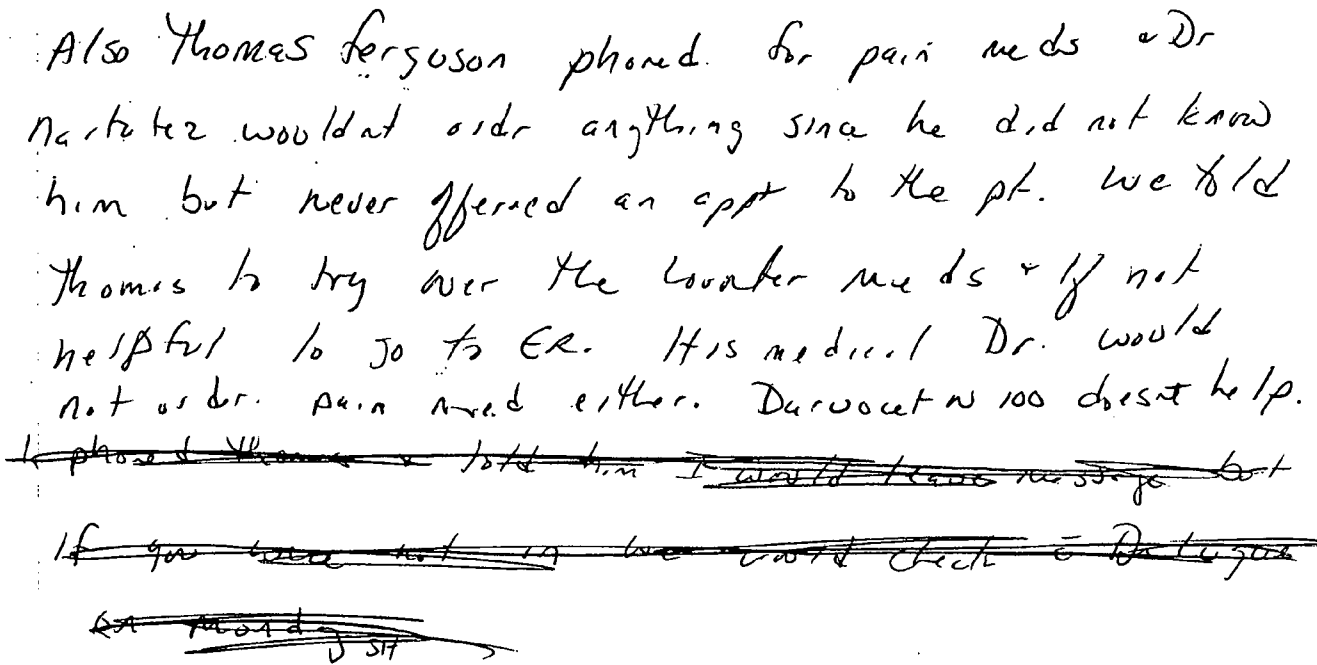 Also Thomas Ferguson phoned. for pain meds & Dr
wouldnt ordr anything since he did not know
him but never offered an appt to the pt. We told
Thomas to try over the counter meds & If not
helpful to go to ER. His medical Dr. would
not order. pain med either. Darvocet N 100 doesnt help.
I phoned Thomas & told him I would leave message but
If you were not in we would check c̄ Dr
on Monday SH